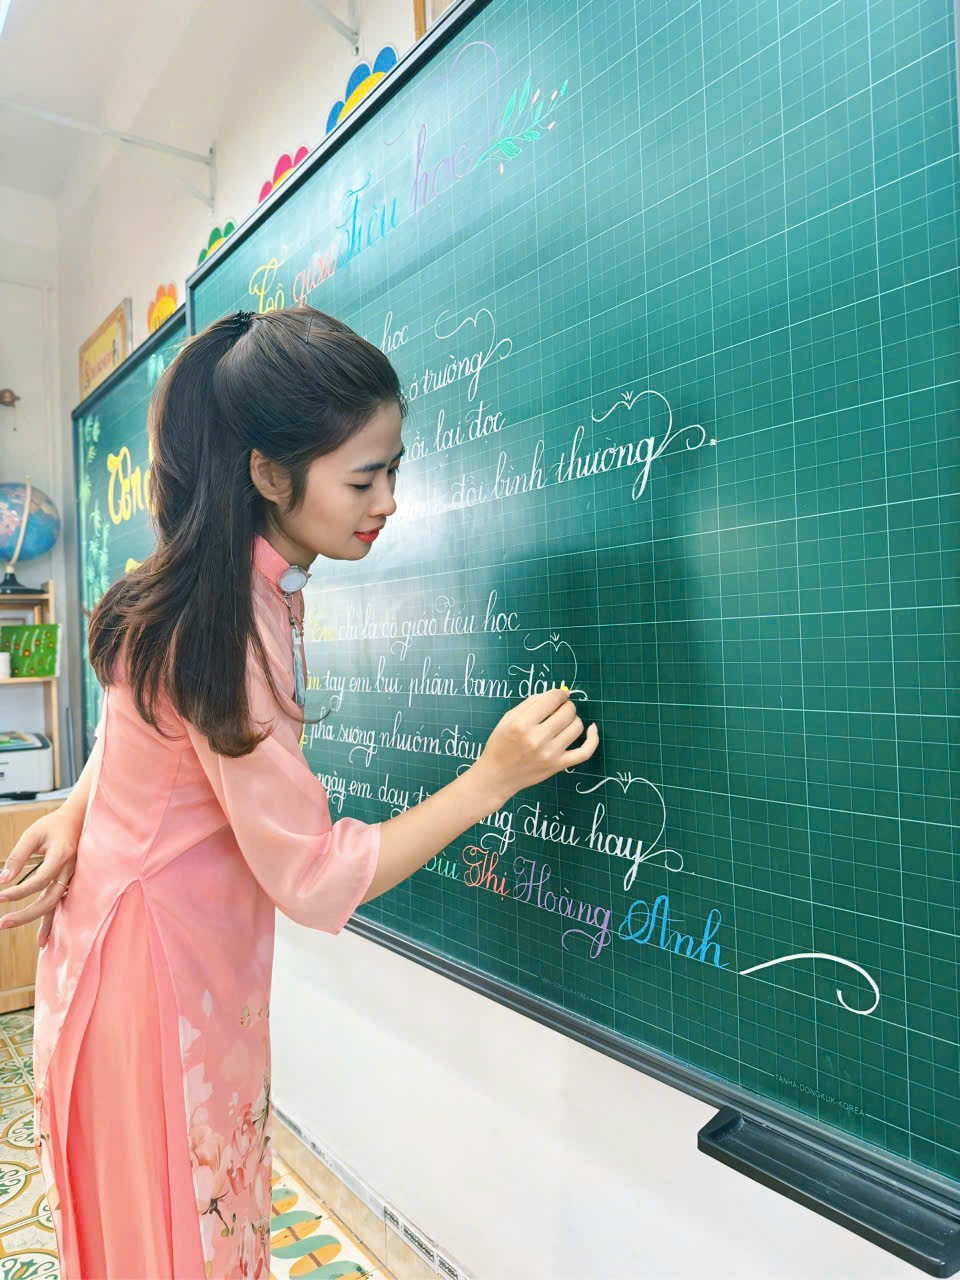 Cô giáo Tiểu học
học
ở trường
lại đọc
đời bình thường
Em chỉ là cô giáo Tiểu học
tay em bụi phấn bám đầy
pha sương nhuốm đầy
ngày em dạy điều hay
Bùi Thị Hoàng Anh
TANHA-DONGKUK-KOREA